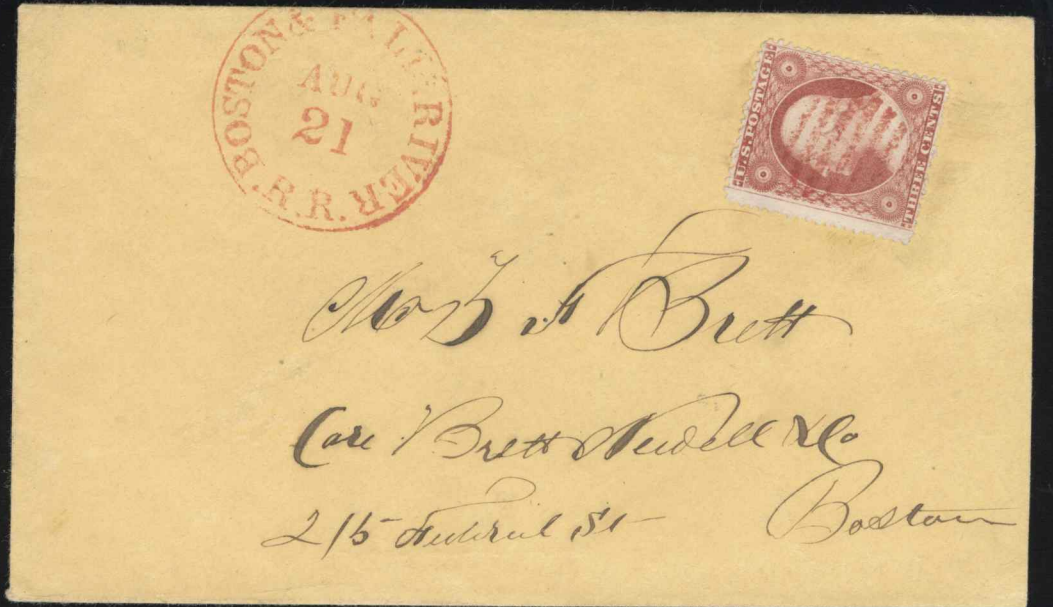 BOSTON & FALL RIVER R.R.
AUG
21
U.S. POSTAGE
THREE CENTS
Brett
Care Brett Newell & Co
215 Federal St
Boston